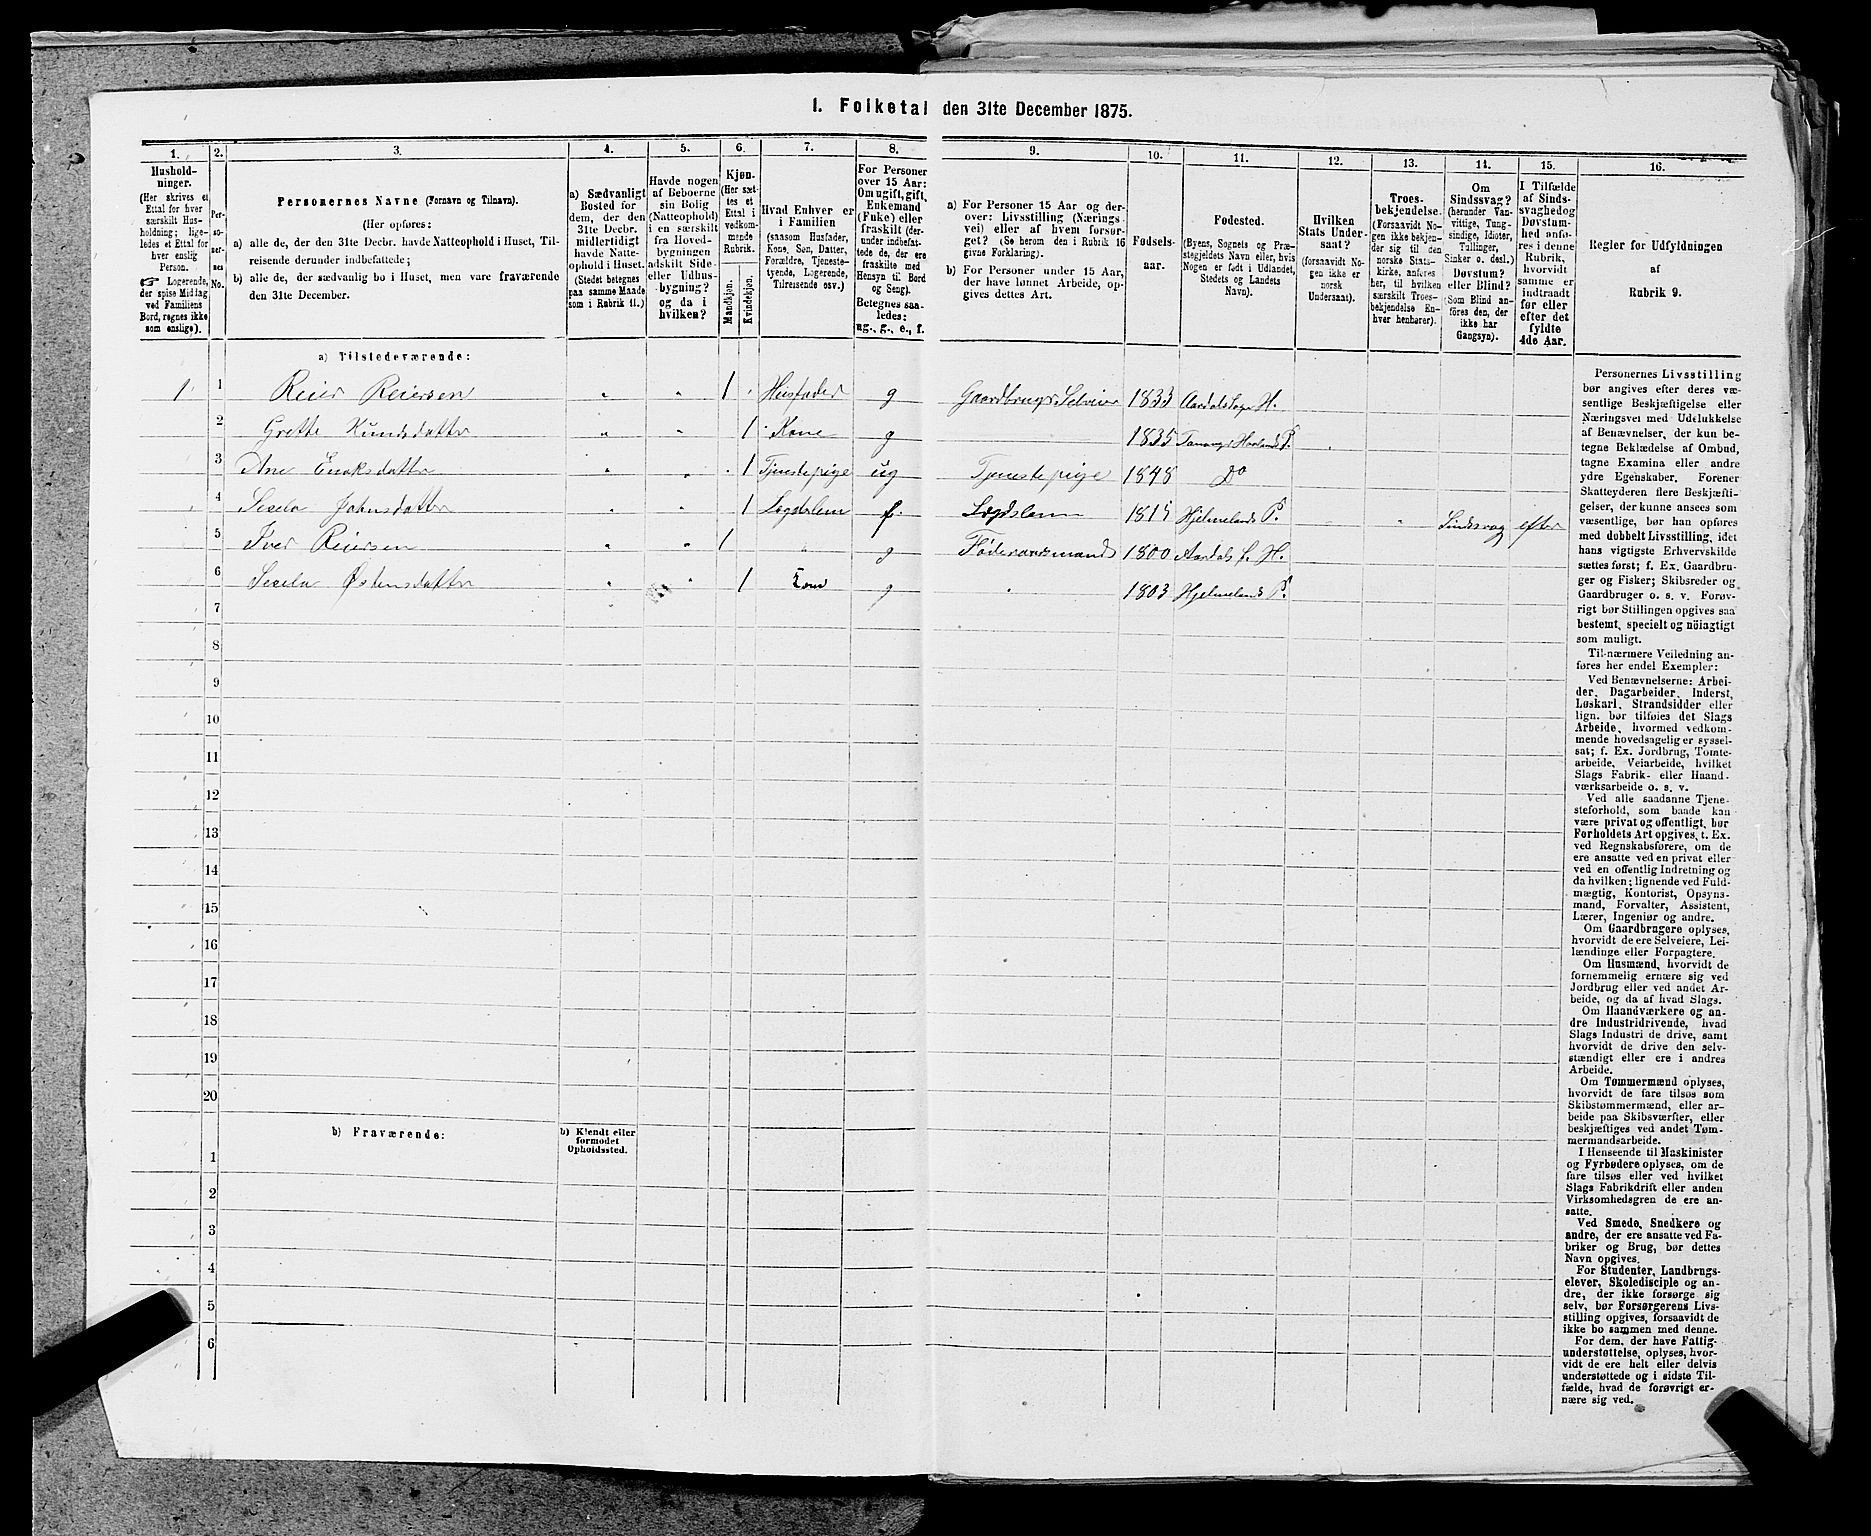 I. Folketal den 31te December 1875.
1.
Hushold-
ninger.
(Her skrives et
Ettal for hver
særskilt Hus-
holdning; lige-
ledes et Ettal for
hver enslig
Person.
☞ Logerende,
der spise Middag
ved Familiens
Bord, regnes ikke
som enslige).
2.
Per-
so-
ner-
nes
No.
3.
Personernes Navne (Fornavn og Tilnavn).
(Her opføres:
a) alle de, der den 31te Decbr. havde Natteophold i Huset, Til-
reisende derunder indbefattede;
b) alle de, der sædvanlig bo i Huset, men vare fraværende
den 31te December.
4.
a) Sædvanligt
Bosted for
dem, der den
31te Decbr.
midlertidigt
havde Natte-
ophold i Huset.
(Stedet betegnes
paa samme Maade
som i Rubrik 11.)
5.
Havde nogen
af Beboerne
sin Bolig
(Natteophold)
i en særskilt
fra Hoved-
bygningen
adskilt Side-
eller Udhus-
bygning?
og da i
hvilken?
6.
Kjøn.
(Her sæt-
tes et
Ettal i
vedkom-
mende
Rubrik.
Mandkjøn.
Kvindekjøn.
7.
Hvad Enhver er
i Familien
(saasom Husfader,
Kone, Søn, Datter,
Forældre, Tjeneste-
tyende, Logerende,
Tilreisende osv.)
8.
For Personer
over 15 Aar:
Om ugift, gift,
Enkemand
(Enke) eller
fraskilt (der-
under indbefat-
tede de, der ere
fraskilte med
Hensyn til Bord
og Seng).
Betegnes saa-
ledes:
ug., g., e., f.
9.
a) For Personer 15 Aar og der-
over: Livsstilling (Nærings-
vei) eller af hvem forsør-
get? (Se herom den i Rubrik 16
givne Forklaring).
b) For Personer under 15 Aar,
der have lønnet Arbeide, op-
gives dettes Art.
10.
Fødsels-
aar.
11.
Fødested.
(Byens, Sognets og Præ-
stegjeldets Navn eller, hvis
Nogen er født i Udlandet,
Stedets og Landets
Navn).
12.
Hvilken
Stats Under-
saat?
(forsaavidt No-
gen ikke er
norsk
Undersaat).
13.
Troes-
bekjendelse.
(Forsaavidt No-
gen ikke bekjen-
der sig til den
norske Stats-
kirke, anføres
her, til hvilken
særskilt Troes-
bekjendelse En-
hver henhører).
14.
Om
Sindssvag?
(herunder Van-
vittige, Tung-
sindige, Idioter,
Tullinger,
Sinker o. desl.)
Døvstum?
eller Blind?
(Som Blind an-
føres den, der
ikke har
Gangsyn).
15.
I Tilfælde
af Sinds-
svaghed og
Døvstum-
hed anfø-
res i denne
Rubrik,
hvorvidt
samme er
indtraadt
før eller
efter det
fyldte
4de Aar.
16.
Regler for Udfyldningen
af
Rubrik 9.
a) Tilstedeværende:
1 1 Reier Reiersen " " 1 Husfader g Gaardbruger Selveier 1833 Aardals H.
2 Grette Knudsdatter " " 1 Kone g 1835 P.
3 Ane Eriksdatter " " 1 Tjenestepige ug Tjenestepige 1848 Do
4 Sesela Johnsdatter " " 1 Lægdslem f. Lægdslem 1815 Hjelmelands P. Sindssvag efter
5 Iver Reiersen " " 1 " g Føderaadsmand 1800 Aardals H.
6 Sesela Østensdatter " " 1 Kone g 1803 Hjelmelands P.
7
8
9
10
11
12
13
14
15
16
17
18
19
20
b) Fraværende:
b) Kjendt eller
formodet
Opholdssted.
1
2
3
4
5
6
Personernes Livsstilling
bør angives efter deres væ-
sentlige Beskjæftigelse eller
Næringsvei med Udelukkelse
af Benævnelser, der kun be-
tegne Beklædelse af Ombud,
tagne Examina eller andre
ydre Egenskaber. Forener
Skatteyderen flere Beskjæfti-
gelser, der kunne ansees som
væsentlige, bør han opføres
med dobbelt Livsstilling, idet
hans vigtigste Erhvervskilde
sættes først; f. Ex. Gaardbru-
ger og Fisker; Skibsreder og
Gaardbruger o. s. v. Forøv-
rigt bør Stillingen opgives saa
bestemt, specielt og nöiagtigt
som muligt.
Til nærmere Veiledning an-
føres her endel Exempler:
Ved Benævnelserne: Arbei-
der, Dagarbeider, Inderst,
Løskarl, Strandsidder eller
lign. bør tilføies det Slags
Arbeide, hvormed vedkom-
mende hovedsagelig er syssel-
sat; f. Ex. Jordbrug, Tomte-
arbeide, Veiarbeide, hvilket
Slags Fabrik- eller Haand-
værksarbeide o. s. v.
Ved alle saadanne Tjene-
steforhold, som baade kan
være privat og offentligt, bør
Forholdets Art opgives, t. Ex.
ved Regnskabsførere, om de
ere ansatte ved en privat eller
ved en offentlig Indretning og
da hvilken; lignende ved Fuld-
mægtig, Kontorist, Opsyns-
mand, Forvalter, Assistent,
Lærer, Ingeniør og andre.
Om Gaardbrugere oplyses,
hvorvidt de ere Selveiere, Lei-
lændinge eller Forpagtere.
Om Husmænd, hvorvidt de
fornemmelig ernære sig ved
Jordbrug eller ved andet Ar-
beide, og da af hvad Slags.
Om Haandværkere og an-
dre Industridrivende, hvad
Slags Industri de drive, samt
hvorvidt de drive den selv-
stændigt eller ere i andres
Arbeide.
Om Tømmermænd oplyses,
hvorvidt de fare tilsøs som
Skibstømmermænd, eller ar-
beide paa Skibsværfter, eller
beskjæftiges ved andet Tøm-
mermandsarbeide.
I Henseende til Maskinister
og Fyrbødere oplyses, om de
fare tilsøs eller ved hvilket
Slags Fabrikdrift eller anden
Virksomhedsgren de ere an-
satte.
Ved Smede, Snedkere og
andre, der ere ansatte ved Fa-
briker og Brug, bør dettes
Navn opgives.
For Studenter, Landbrugs-
elever, Skoledisciple og an-
dre, der ikke forsørge sig
selv, bør Forsørgerens Livs-
stilling opgives, forsaavidt de
ikke bo sammen med denne.
For dem, der have Fattig-
understøttelse, oplyses, hvor-
vidt de ere helt eller delvis
understøttede og i sidste Til-
fælde, hvad de forøvrigt er-
nære sig ved.